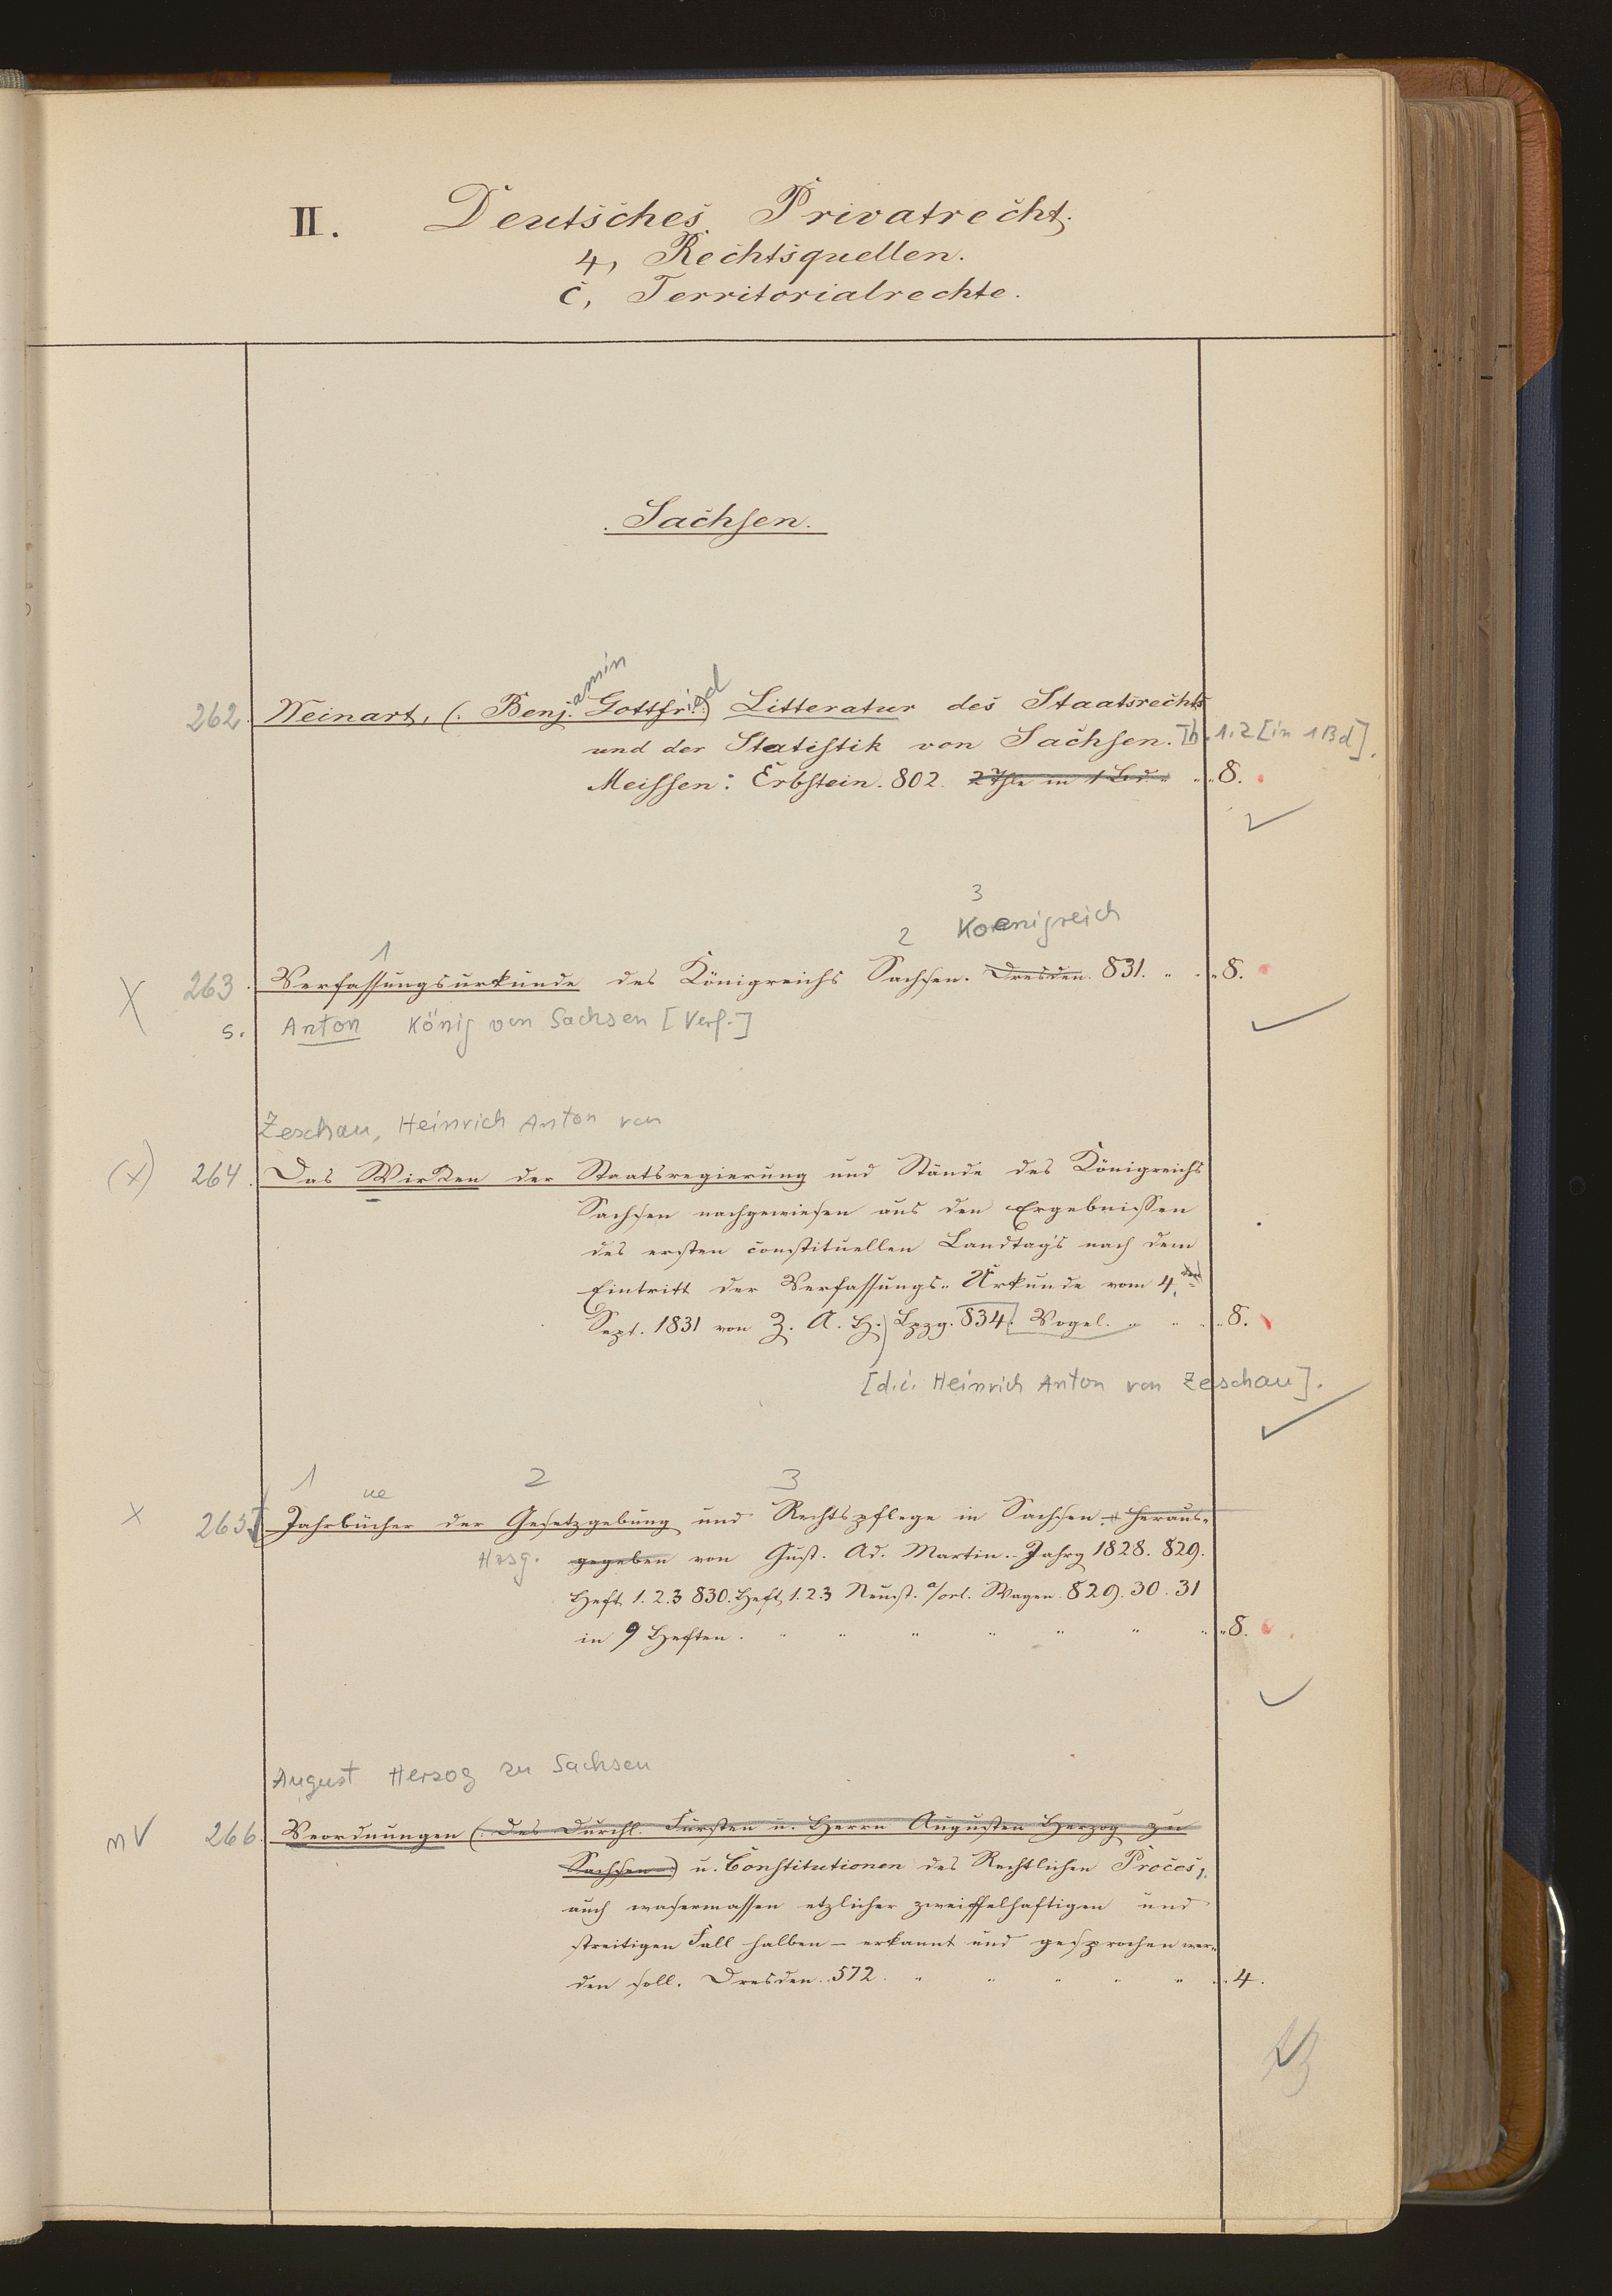 II. Deutsches Privatrecht.
4, Rechtsquellen.
c, Territorialrechte.
Sachsen.
amin
262. Weinart, (: Benj. Gottfried) Litteratur des Staatsrechts
und der Statistik von Sachsen. Th. 1.2 [in 1 Bd].
Meissen: Erbstein. 802. 2 Thle in 1 Bd. " " 8.
3
2 Koenigreich
1
X 263. Verfassungsurkunde des Königreichs Sachsen. Dresden. 831. " " 8.
s. Anton König von Sachsen [Verf.]
Zeschau, Heinrich Anton von
(x) 264. Das Wirken der Staatsregierung und Stände des Königreichs
Sachsen nachgewiesen aus den Ergebnissen
des ersten constituellen Landtags nach dem
Eintritt der Verfassungs- Urkunde vom 4. ten
Sept. 1831 von Z. A. H.) Lpzg. 834. Vogel. " " 8.
[d.i. Heinrich Anton von Zeschau].
1 ue 2 3
x 265. Jahrbücher der Gesetzgebung und Rechtspflege in Sachsen. heraus-
Hrsg. gegeben von Gust. Ad. Martin. Jahrg 1828. 829.
Heft 1. 2. 3 830. Heft 1. 2. 3 Neust. a/orl. Wagen. 829. 30. 31
in 9 Heften. " " " " " " " 8.
August Herzog zu Sachsen
nV 266. Veordnungen (: des Durchl. Fürsten u. Herrn Augusten Herzog zu
Sachsen) u. Constitutionen des Rechtlichen Proces,
auch wasermassen etzlicher zweiffelhaftigen und
streitigen Fall halben – erkannt und gesprochen wer-
den soll. Dresden. 572. " " " " " 4.